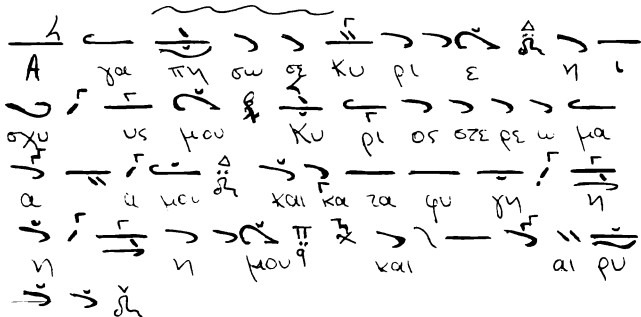 Α γα πη σω σε Κυ ρι ε η ι
σχυ υς μου Κυ ρι ος στε ρε ω μα
α α μου και κα τα φυ γη η
η η μου και αι ρυ